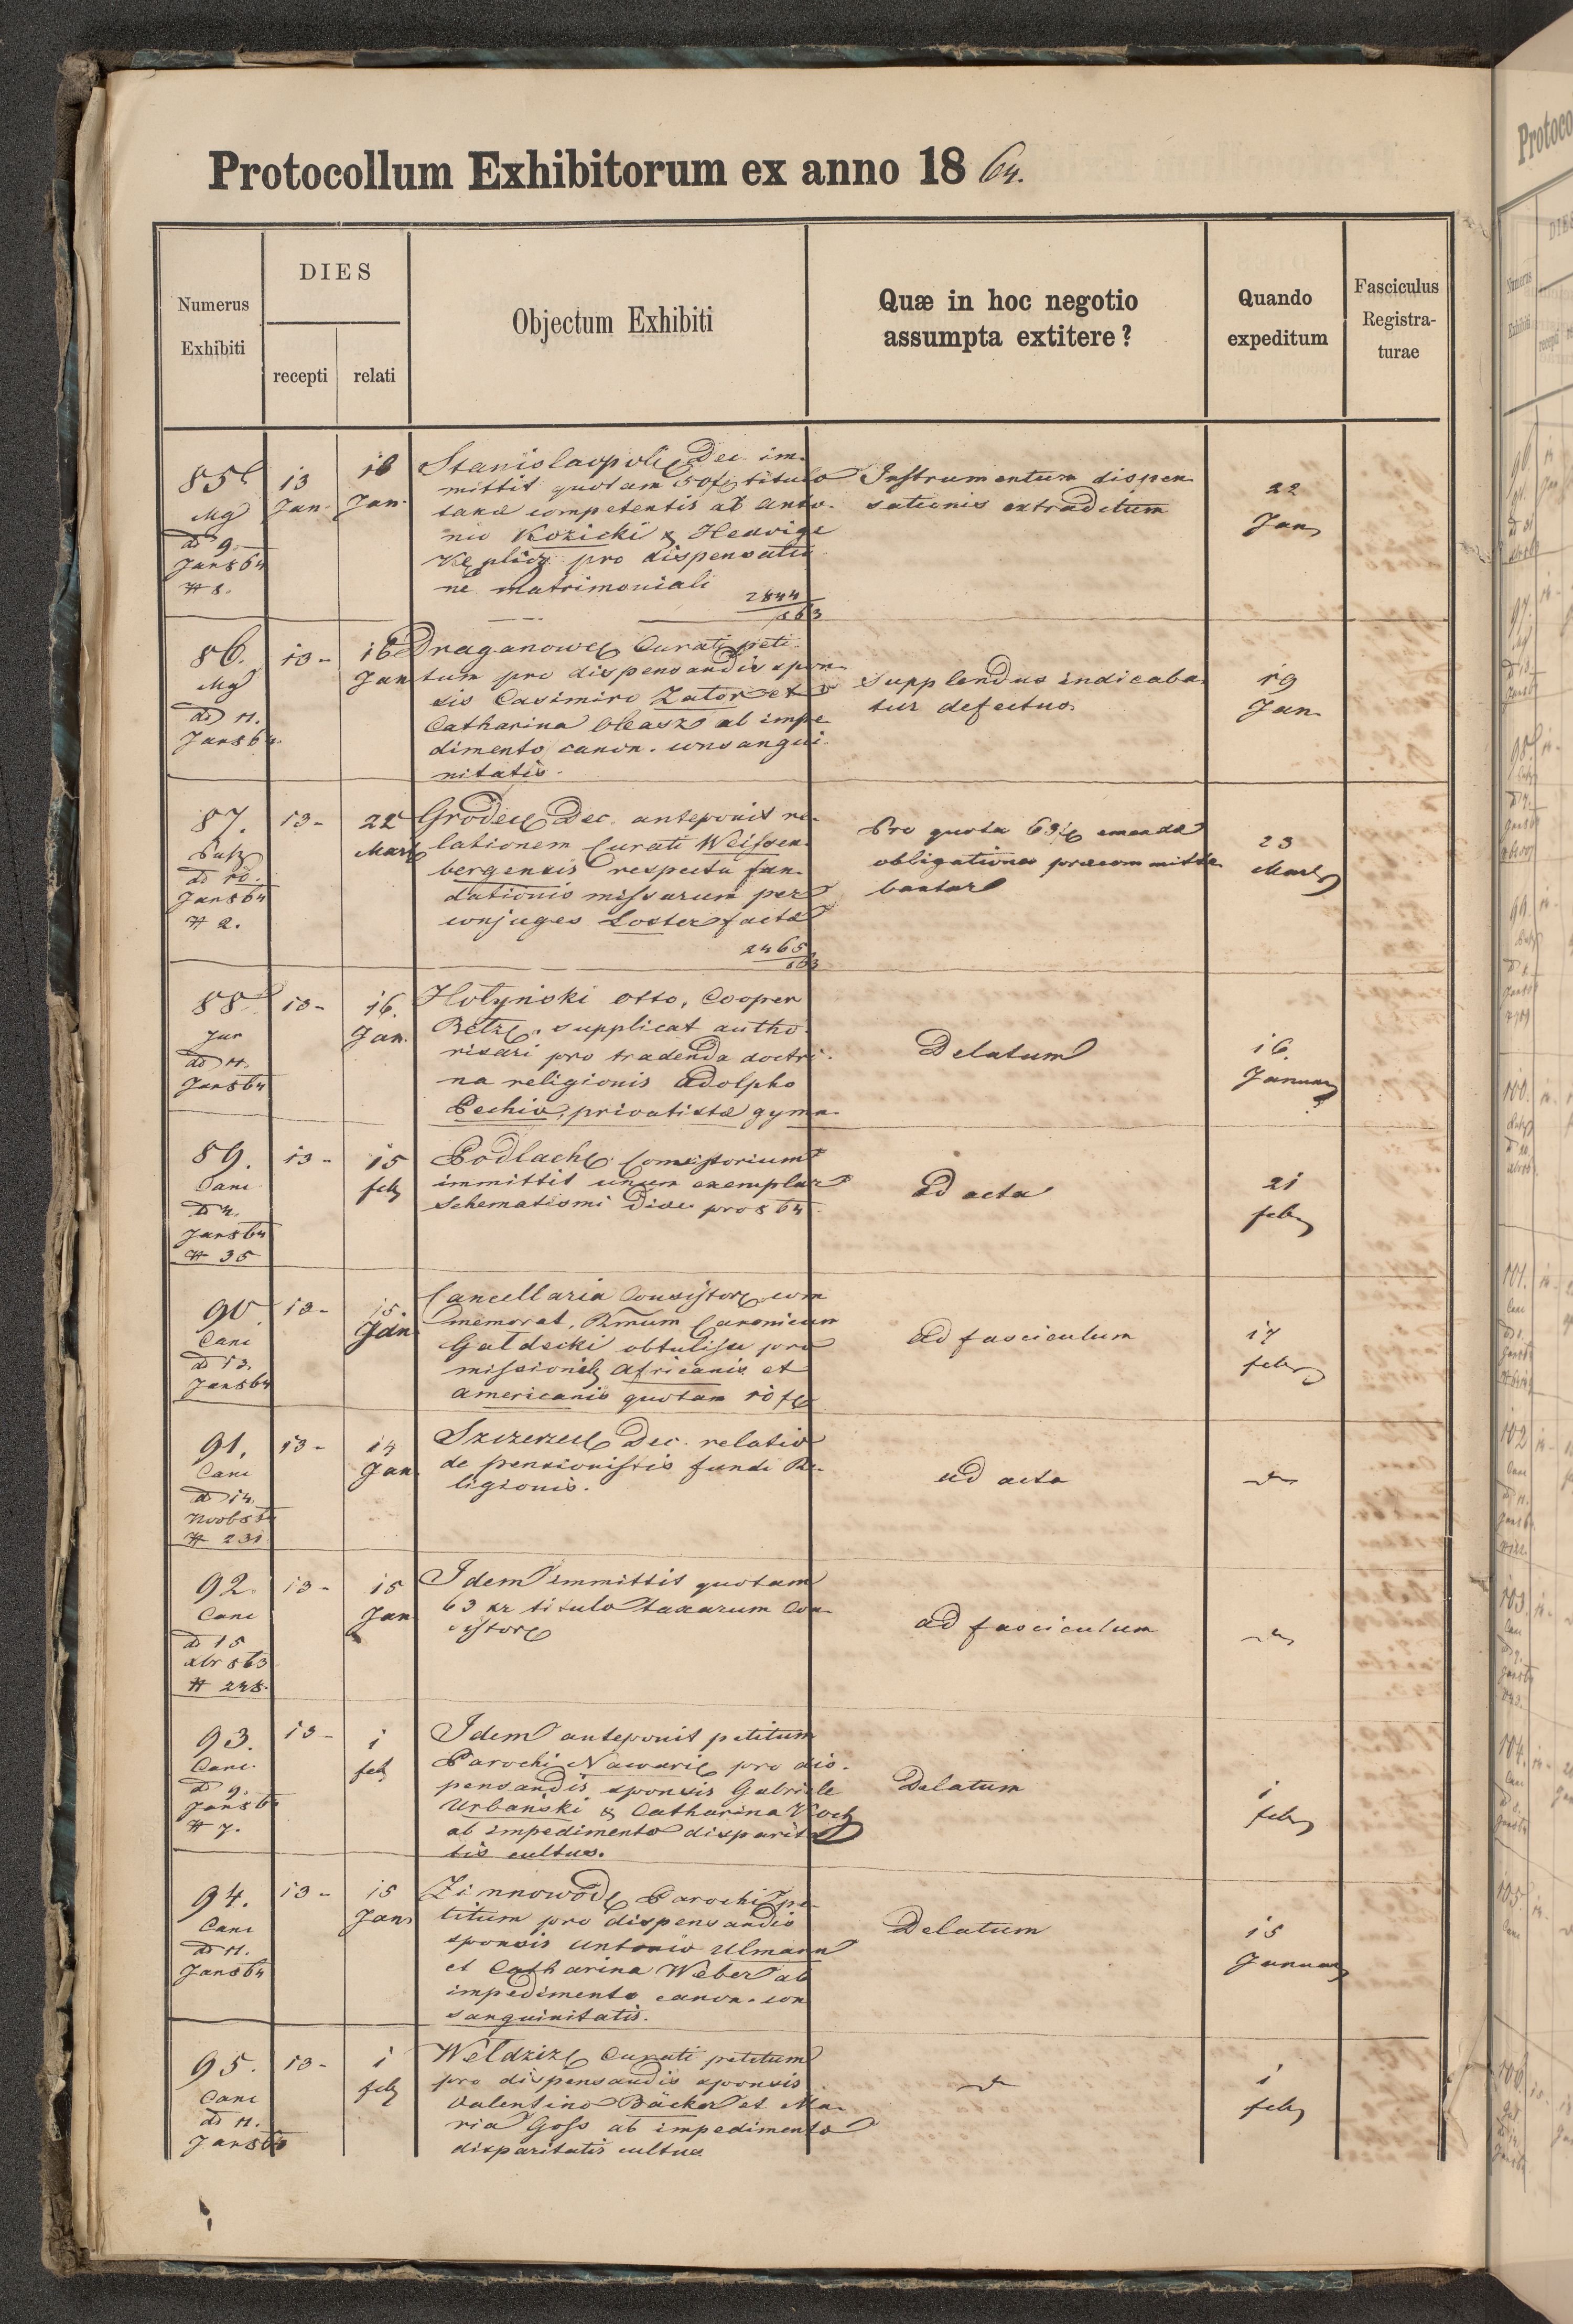 Protocollum Exhibitorum ex anno 18 64.
Numerus
Exhibiti
DIES
recepti
relati
Objectum Exhibiti
Quæ in hoc negotio
assumpta extitere?
Quando
expeditum
Fasciculus
Registra-
turae
85
Mg
ad 9.
Jan 864
# 8.
13
Jan.
16
Jan.
Stanislaopoli Dec. im-
mittit quotam 50 f titulo
taxae competentis ab Anto-
nio Kozicki & Hedvige
Keplicz pro dispensatio
ne matrimoniali
2844
863
Instrumentum dispen
sationis extraditum
22
Jan
86.
Mg
ad 11.
Jan 864.
13-
16
Jan
Draganow Curati peti-
tum pro dispensandis spon-
sis Casimiro Zator et
Catharina Oleasz ab impe
dimento canon. consangui-
nitatis.
Supplendus indicaba-
tur defectus.
19
Jan
87.
ad 10.
Jan 864
# 2.
13-
22
Mart
Grodec Dec. anteponit re-
lationem Curati Weissen-
bergensis respectu fun-
dationis missarum per
conjuges Loster factae
2465
863
Pro quota 63 emendae
obligationes praecommitte
bantur
23
Mart
88
Jur
ad 11.
Jan 864
13-
16.
Jan.
Hołyński Otto, Cooper
Betz. supplicat autho-
risari pro tradenda doctri-
na religionis Adolpho
Pechio, privatistae gymn-
Delatum
16.
Januar
89.
Canc
ad 4.
Jan 864
# 35
13-
15
feb
Podlach Consistorium
immittit unum exemplar
Schematismi Dioec pro 864.
ad acta
21
feb
90
Canc
ad 13.
Jan 864
13-
15
Jan
Cancellaria Consistor com
memorat, Rmum Canonicum
Gałdecki obtulisse pro
missionib Africanis et
americanis quotam 10 f
ad fasciculum
17
feb
91.
Canc
ad 14.
Novb 863
# 231
13-
14
Jan
Szczerzec Dec. relatio
de pensionistis fundi Re-
ligionis.
ad acta
92
Canc
ad 15
xbr 863
# 248.
13-
15
Jan
Idem immittit quotam
63 xr titulo taxarum Con-
sistor
ad fasciculum
93.
Canc.
ad 9.
Jan 864
# 7.
13-
1
feb
Idem anteponit petitum
Parochi Nawari pro dis-
pensandis sponsis Gabriele
Urbański & Catharina Koch
ab impedimento disparita
tis cultus.
Delatum
1
feb
94.
Canc
ad 11.
Jan 864
13-
15
Jan
Zinnowod Parochi pe-
titum pro dispensandis
sponsis Antonio Ulmann
et Catharina Weber ab
impedimento canon. con
sanguinitatis.
Delatum
15
Januar
95.
Canc
ad 11.
Jan 864
13-
1
feb
Wełdziz Curati petitum
pro dispensandis sponsis
Valentino Bäcker et Ma-
ria Goss ab impedimento
disparitatis cultus
1
feb